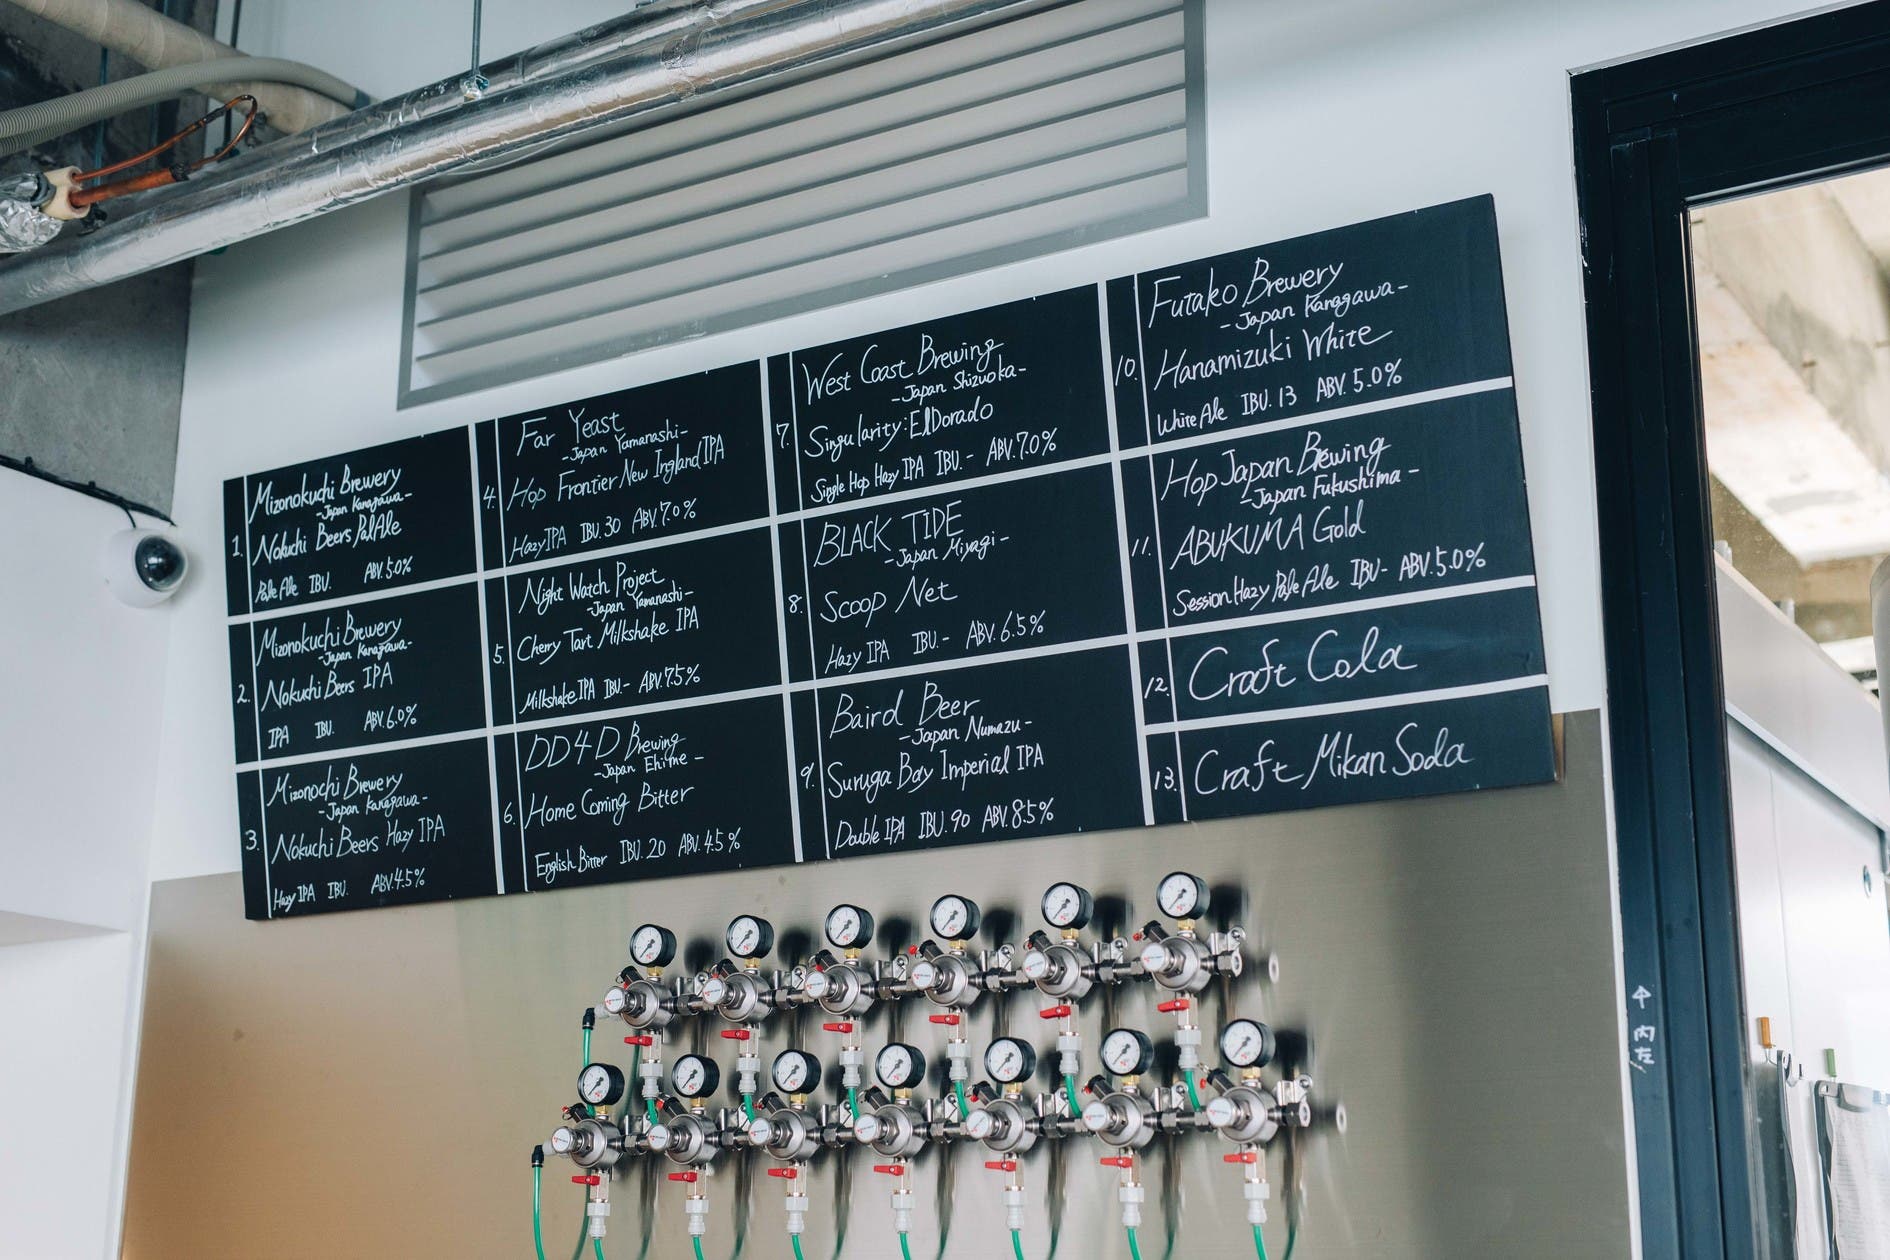 1.
Mizonokuchi Brewery
-Japan Kanagawa-
Nokuchi Beers PalAle
Pale Ale IBU. ABV.5.0%
2.
Mizonokuchi Brewery
-Japan Kanagawa-
Nokuchi Beers IPA
IPA IBU. ABV.6.0%
3.
Mizonochi Brewery
-Japan Kanagawa-
Nokuchi Beers Hazy IPA
Hazy IPA IBU. ABV.4.5%
4.
Far Yeast
-Japan Yamanashi-
Hop Frontier New Ingland IPA
Hazy IPA IBU.30 ABV.7.0%
5.
Night Watch Project
-Japan Yamanashi-
Cherry Tart Milkshake IPA
Milkshake IPA IBU.- ABV.7.5%
6.
DD4D Brewing
-Japan Ehime-
Home Coming Bitter
English Bitter IBU.20 ABV.4.5%
7.
West Coast Brewing
-Japan Shizuoka-
Singularity:ElDorado
Single Hop Hazy IPA IBU.- ABV.7.0%
8.
BLACK TIDE
-Japan Miyagi-
Scoop Net
Hazy IPA IBU.- ABV.6.5%
9.
Baird Beer
-Japan Numazu-
Suruga Bay Imperial IPA
Double IPA IBU.90 ABV.8.5%
10.
Futako Brewery
-Japan Kanagawa-
Hanamizuki White
White Ale IBU.13 ABV.5.0%
11.
Hop Japan Brewing
-Japan Fukushima-
ABUKUMA Gold
Session Hazy Pale Ale IBU- ABV.5.0%
12.
Craft Cola
13.
Craft Mikan Soda
内
左